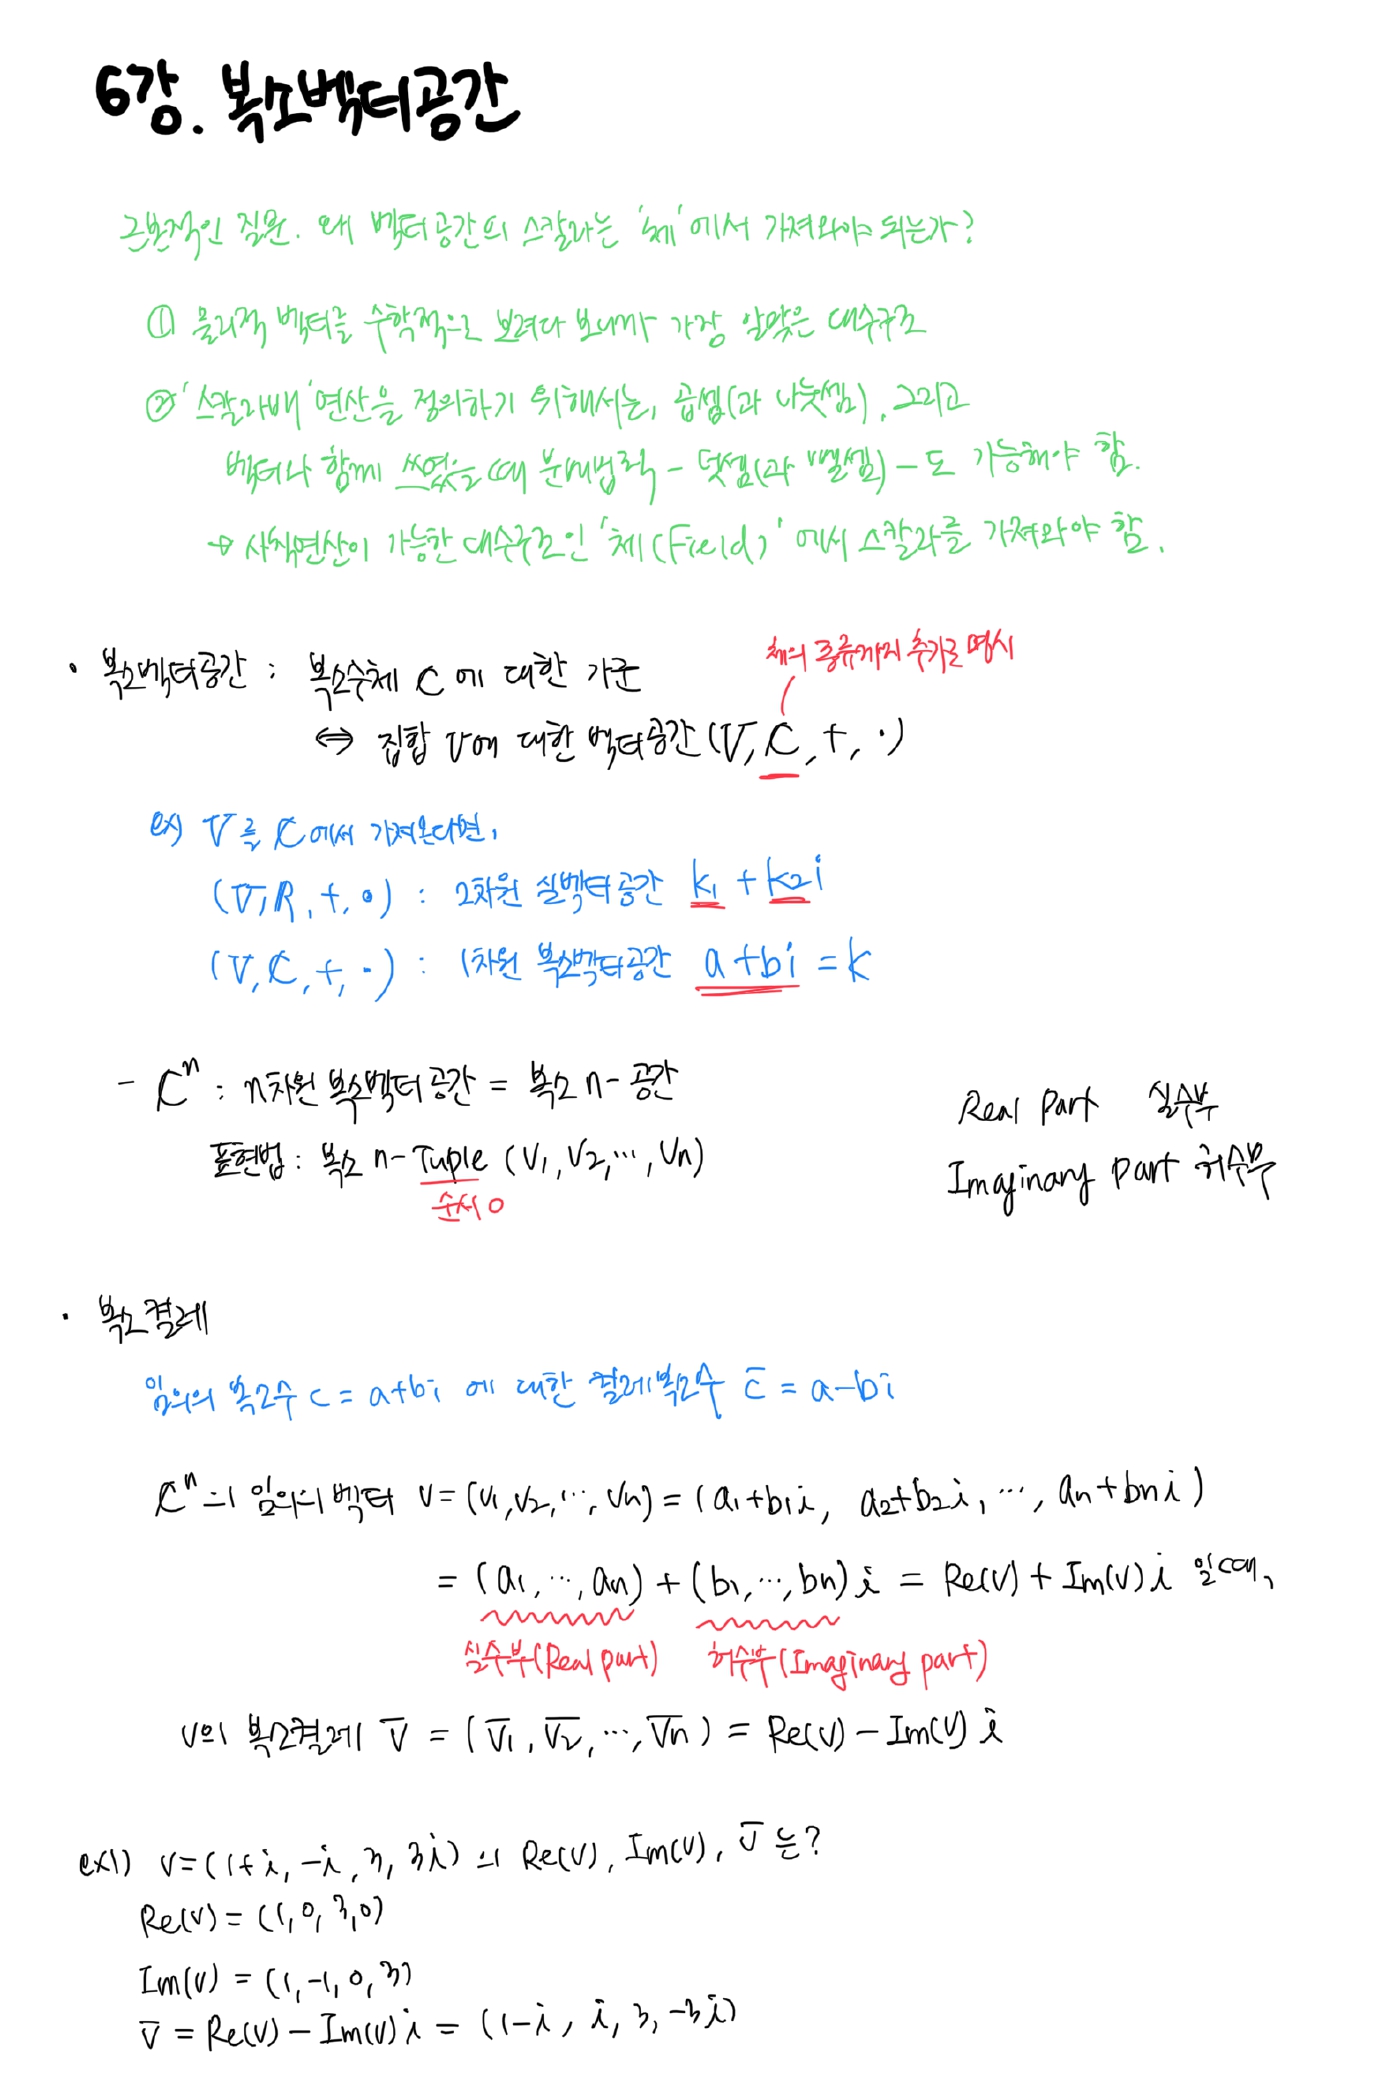 6강. 복소벡터공간
근본적인 질문. 왜 벡터공간의 스칼라는 '체'에서 가져와야 되는가?
① 물리적 벡터를 수학적으로 보려다 보니까 가장 알맞은 대수구조
② '스칼라배' 연산을 정의하기 위해서는, 곱셈(과 나눗셈), 그리고
벡터나 함께 쓰였을 때 분배법칙 - 덧셈(과 뺄셈) - 도 가능해야 함.
→ 사칙연산이 가능한 대수구조인 '체(Field)' 에서 스칼라를 가져와야 함.
체의 종류까지 추가로 명시
• 복소벡터공간 : 복소수체 ℂ에 대한 가군
⇔ 집합 V에 대한 벡터공간 (V, ℂ, +, ·)
ex) V를 ℂ에서 가져온다면,
(V, R, +, ·) : 2차원 실벡터공간 k₁ + k₂i
(V, ℂ, +, ·) : 1차원 복소벡터공간 a+bi = k
- ℂⁿ : n차원 복소벡터공간 = 복소 n-공간
표현법 : 복소 n-Tuple (v₁, v₂, ⋯, vₙ)
순서 o
Real Part 실수부
Imaginary part 허수부
• 복소켤레
임의의 복소수 c = a+bi 에 대한 켤레복소수 c̄ = a-bi
ℂⁿ의 임의의 벡터 v = (v₁, v₂, ⋯, vₙ) = (a₁+b₁i, a₂+b₂i, ⋯, aₙ+bₙi)
= (a₁, ⋯, aₙ) + (b₁, ⋯, bₙ)i = Re(v) + Im(v)i 일 때,
실수부(Real part) 허수부(Imaginary part)
v의 복소켤레 v̄ = (v̄₁, v̄₂, ⋯, v̄ₙ) = Re(v) - Im(v)i
ex1) v = (1+i, -i, 3, 3i) 의 Re(v), Im(v), v̄ 는?
Re(v) = (1, 0, 3, 0)
Im(v) = (1, -1, 0, 3)
v̄ = Re(v) - Im(v)i = (1-i, i, 3, -3i)